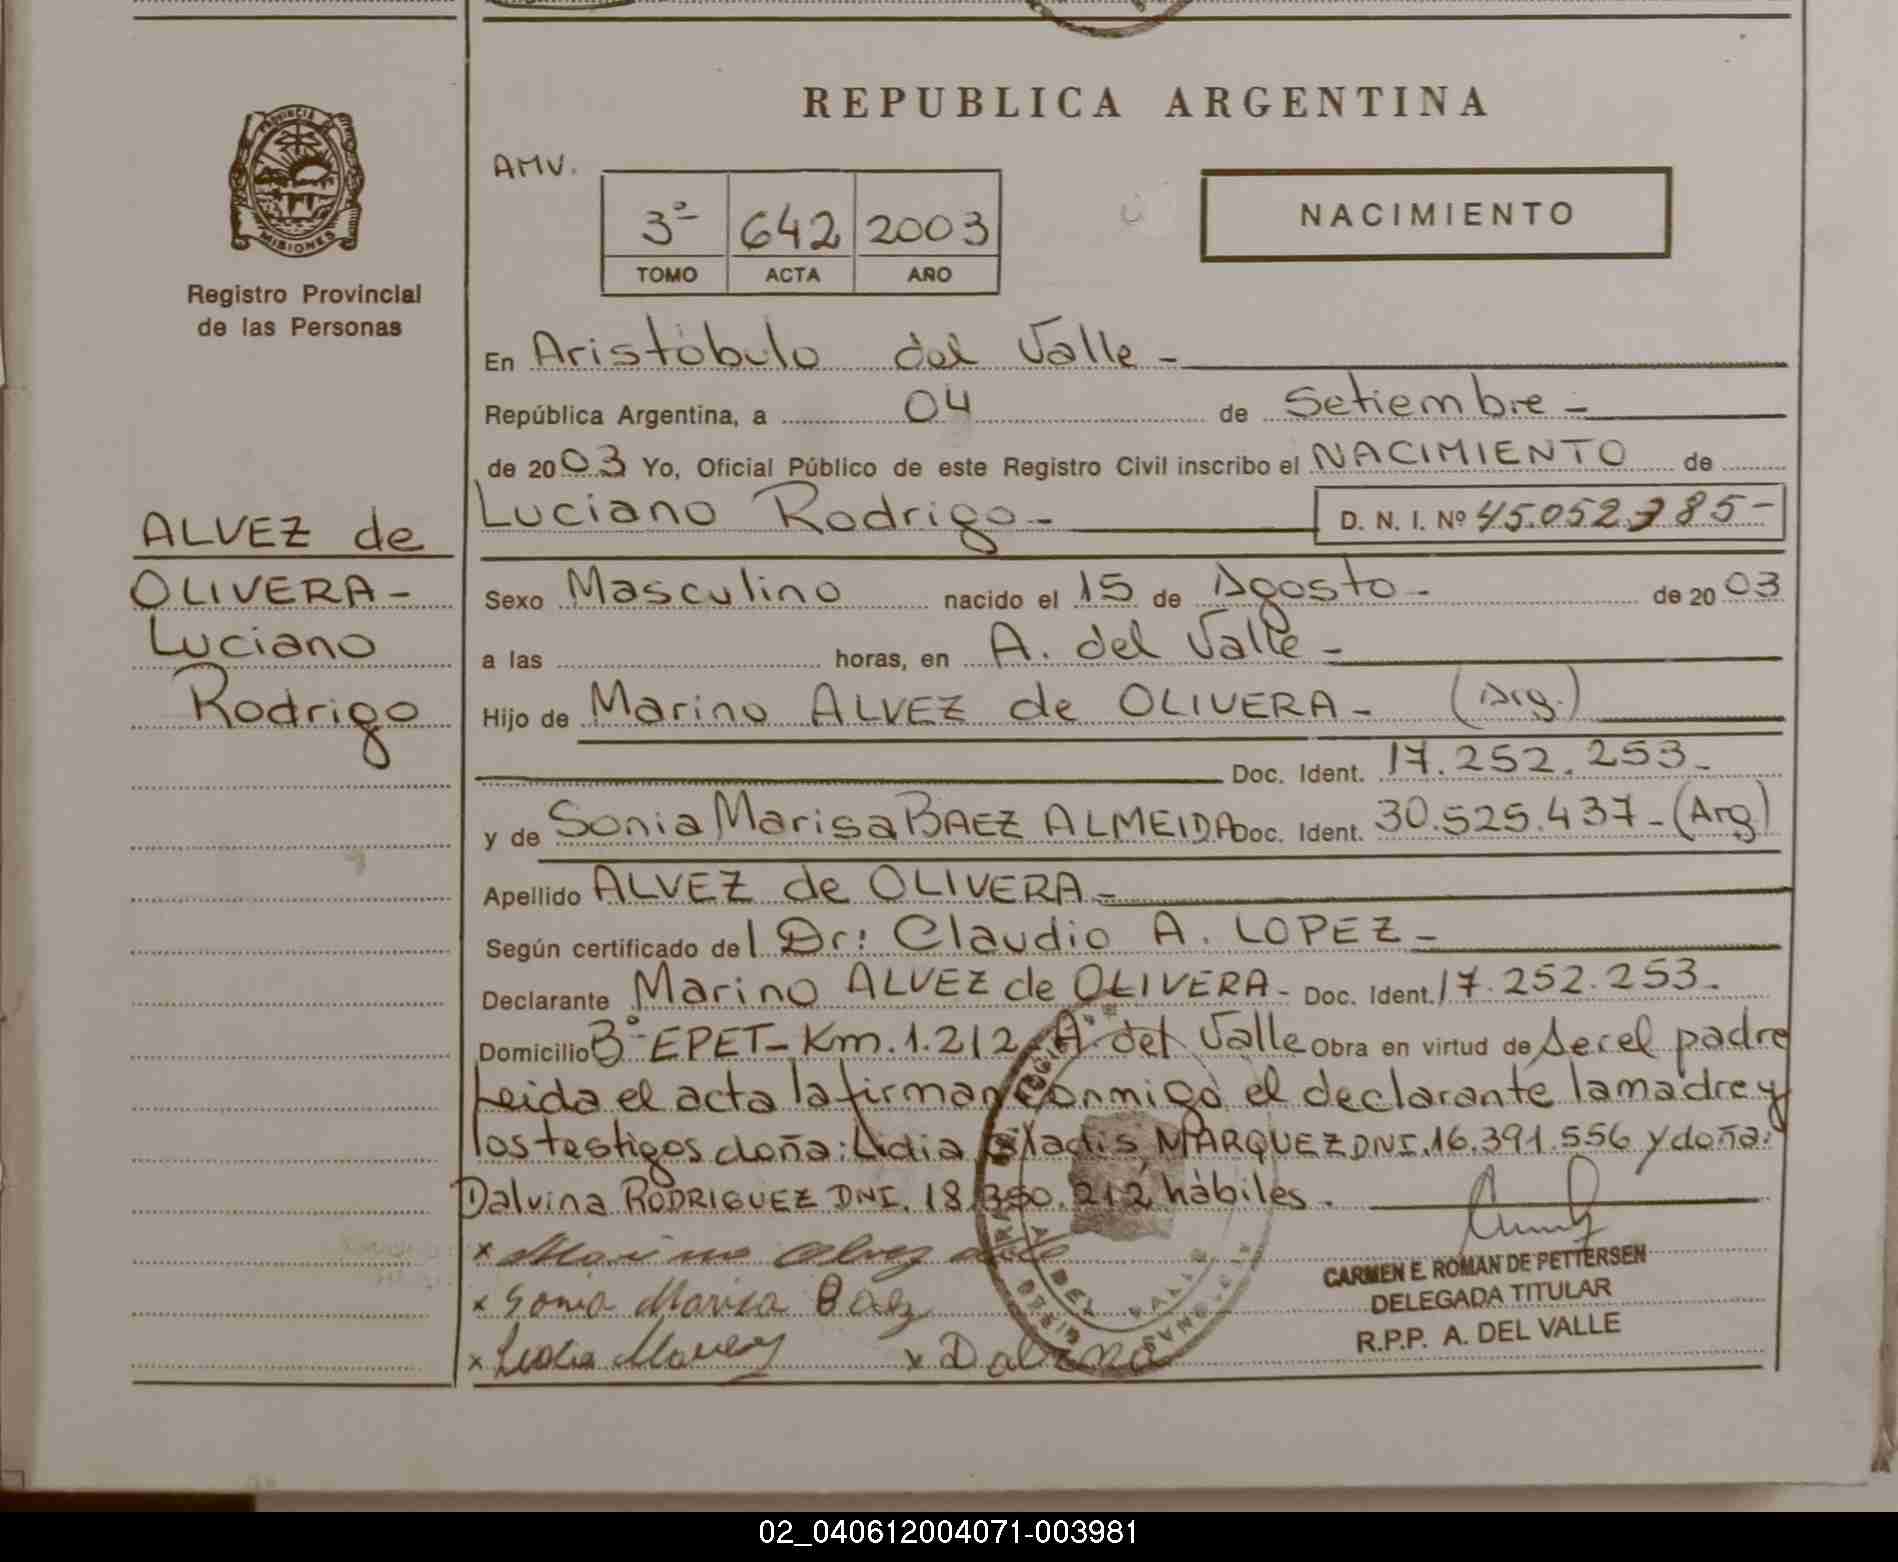 PROVINCIA DE
MISIONES
Registro Provincial
de las Personas
ALVEZ de
OLIVERA-
Luciano
Rodrigo
REPUBLICA ARGENTINA
AMV.
3º 642 2003
TOMO ACTA AÑO
NACIMIENTO
En Aristóbulo del Valle -
República Argentina, a 04 de Setiembre -
de 2003 Yo, Oficial Público de este Registro Civil inscribo el NACIMIENTO de
Luciano Rodrigo - D. N. I. Nº 45.052.385-
Sexo Masculino nacido el 15 de Agosto - de 2003
a las horas, en A. del Valle -
Hijo de Marino ALVEZ de OLIVERA - (Arg.)
Doc. Ident. 17.252.253-
y de Sonia Marisa BAEZ ALMEIDA Doc. Ident. 30.525.437- (Arg)
Apellido ALVEZ de OLIVERA -
Según certificado del Dr: Claudio A. LOPEZ -
Declarante Marino ALVEZ de OLIVERA - Doc. Ident. 17.252.253-
Domicilio Bº EPET- Km. 1.212 A. del Valle Obra en virtud de Ser el padre
Leida el acta la firman conmigo el declarante la madre y
los testigos doña: Lidia Gladis MARQUEZ DNI. 16.391.556 y doña:
Dalvina RODRIGUEZ DNI. 18.350.212 hábiles.
x Marino Alvez de
x Sonia Marisa Baez
x Lidia x Dalvina
CARMEN E. ROMAN DE PETTERSEN
DELEGADA TITULAR
R.P.P. A. DEL VALLE
02_040612004071-003981